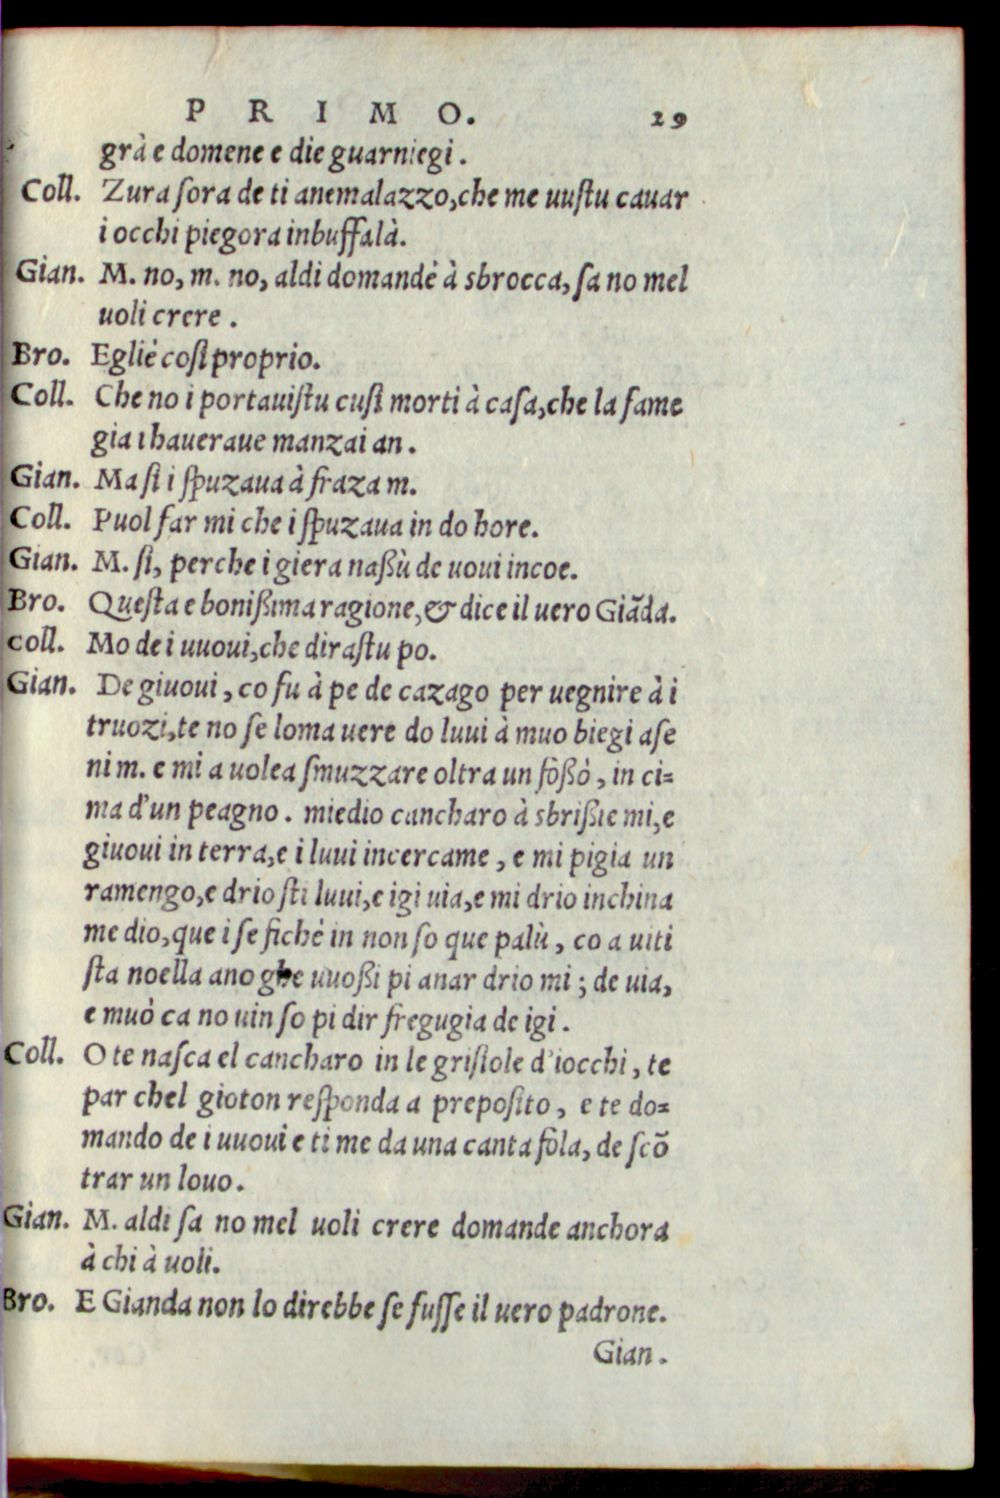 PRIMO. 29
grà e domene e die guarniegi.
Coll. Zura ſora de ti anemalazzo, che me uuſtu cauar
i occhi piegora inbuffalà.
Gian. M. no, m. no, aldi domandè à sbrocca, ſa no mel
uoli crere.
Bro. Egliè coſi proprio.
Coll. Che no i portauiſtu cuſi morti à caſa, che la fame
gia i haueraue manzai an.
Gian. Ma ſi i ſpuzaua à fraza m.
Coll. Puol far mi che i ſpuzaua in do hore.
Gian. M. ſi, perche i giera naßù de uoui incoe.
Bro. Queſta e bonißima ragione, & dice il uero Giãda.
coll. Mo de i uuoui, che diraſtu po.
Gian. De giuoui, co fu à pe de cazago per uegnire à i
truozi, te no ſe loma uere do luui à muo biegi aſe
ni m. e mi a uolea ſmuzzare oltra un foßò, in ci=
ma d'un peagno. miedio cancharo à sbrißie mi, e
giuoui in terra, e i luui incercame, e mi pigia un
ramengo, e drio ſti luui, e igi uia, e mi drio inchina
me dio, que i ſe fichè in non ſo que palù, co a uiti
ſta noella ano ghe uuoßi pi anar drio mi; de uia,
e muò ca no uin ſo pi dir fregugia de igi.
Coll. O te naſca el cancharo in le griſiole d'iocchi, te
par chel gioton reſponda a prepoſito, e te do=
mando de i uuoui e ti me da una canta fola, de ſcõ
trar un louo.
Gian. M. aldi ſa no mel uoli crere domande anchora
à chi à uoli.
Bro. E Gianda non lo direbbe ſe fuſſe il uero padrone.
Gian.